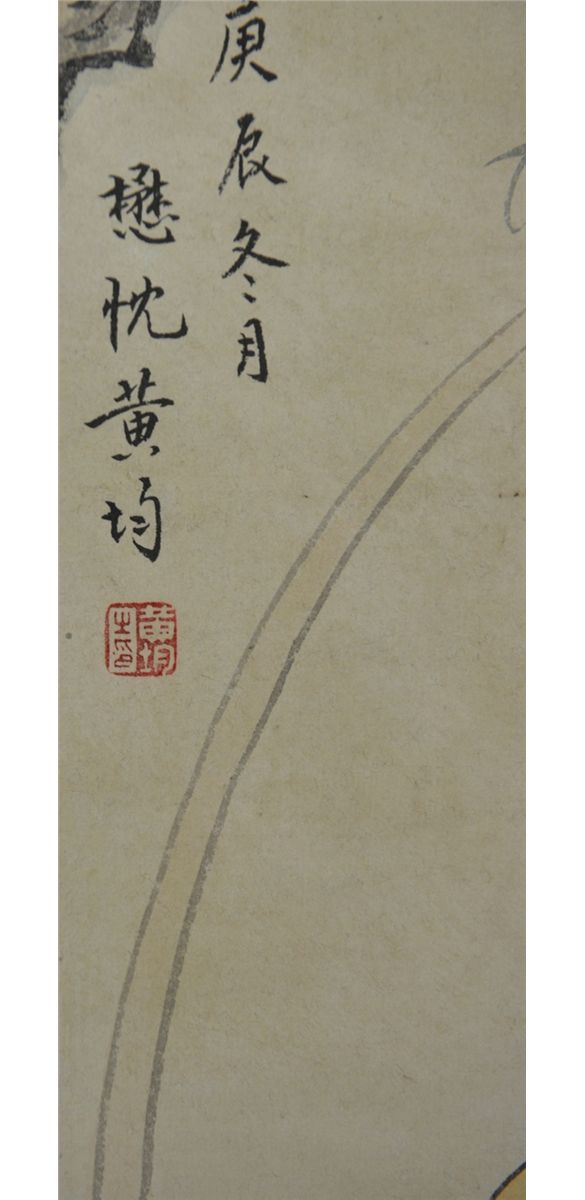 庚辰冬月
懋忱黄均
黄均之印